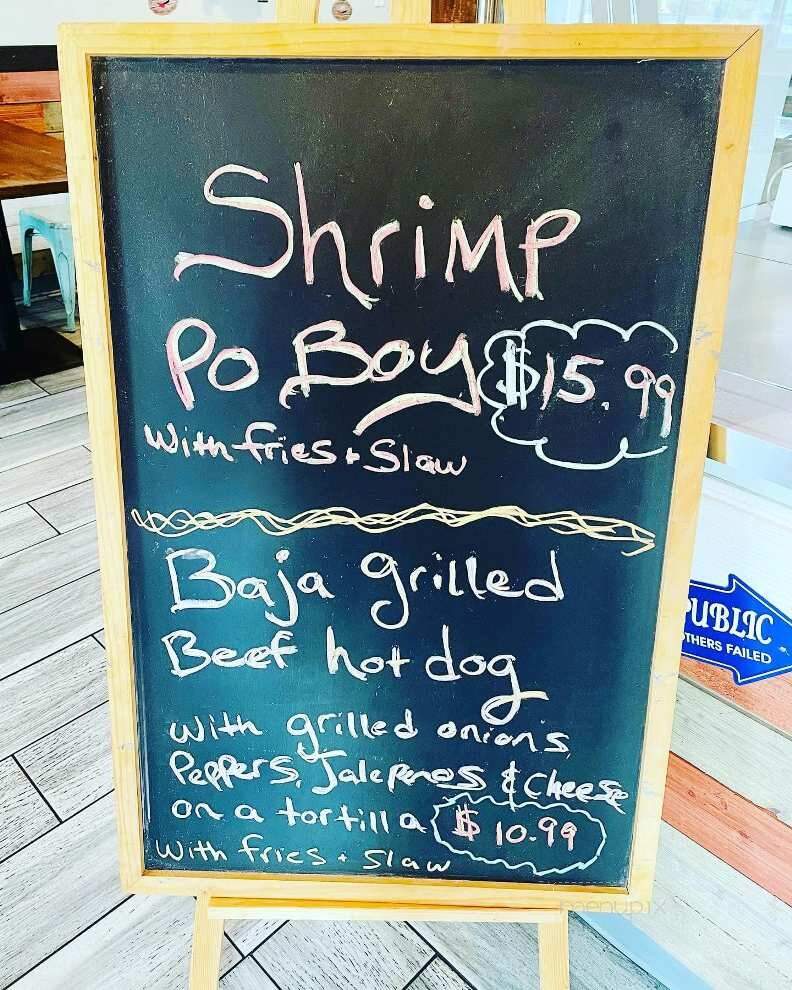 Shrimp
Po Boy $15.99
With fries + Slaw
Baja grilled
Beef hot dog
with grilled onions
Peppers, Jalepenos & Cheese
on a tortilla $10.99
With fries + Slaw
PUBLIC
THERS FAILED
menupix